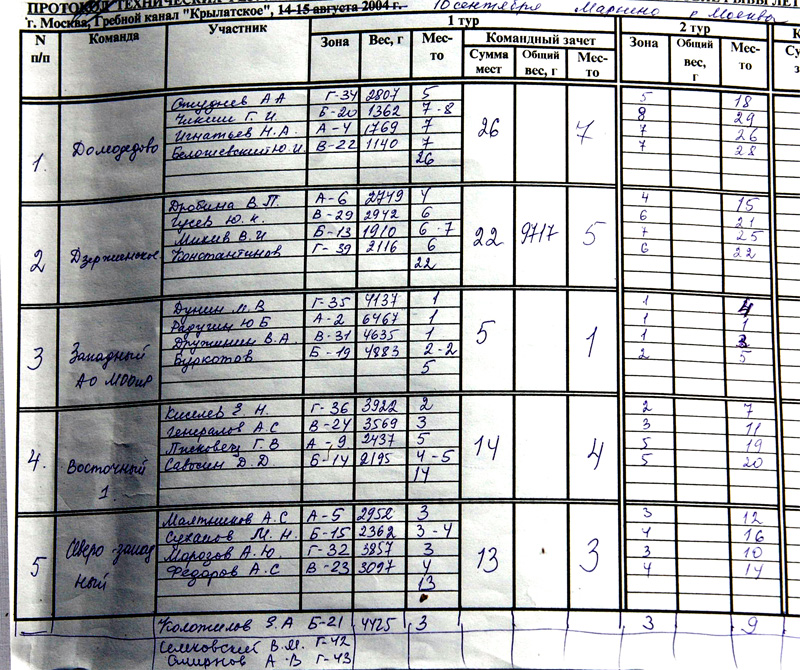 ПРОТОКОЛ ТЕХНИЧЕСКИ
г. Москва, Гребной канал "Крылатское", 14-15 августа 2004 г. 10 сентября Марьино р Москва
N п/п Команда Участник 1 тур 2 тур
Зона Вес, г Мес-то Командный зачет Зона Общий вес, г Мес-то
Сумма мест Общий вес, г Мес-то
1. Домодедово 26 7
Г-34 2807 5 5 18
Чикин Г. И. Б-20 1362 7-8 8 29
Игнатьев Н.А. А-4 1769 7 7 26
Белошевский Ю.И В-22 1140 7 7 28
26
2 Дзержинское 22 9717 5
Дробина В.П. А-6 2749 4 4 15
Гусев Ю.К. В-29 2942 6 6 21
Микив В.И Б-13 1910 6-7 7 25
Константинов Г-39 2116 6 6 22
22
3 Западный АО МООиР 5 1
Дунин М.В Г-35 4137 1 1 4
Радугин Ю Б А-2 6467 1 1 1
Дружинин В.А. В-31 4635 1 1
Буркотов Б-19 4883 2-2 2 5
5
4. Восточный 1. 14 4
Киселев Э. Н. Г-36 3922 2 2 7
Генералов А.С В-24 3569 3 3 11
Лисковец Г.В А-9 2437 5 5 19
Савосин Д.Д Б-14 2195 4-5 5 20
14
5 Северо-западный 13 3
Малтников А.С А-5 2952 3 3 12
Суханов М.Н. Б-15 2362 3-4 4 16
Морозов А.Ю. Г-32 3857 3 3 10
Федоров А.С В-23 3097 4 4 14
13
Коложилов Э.А Б-21 4425 3 3 9
Селковский В.М. Г-42
Смирнов А В Г-43